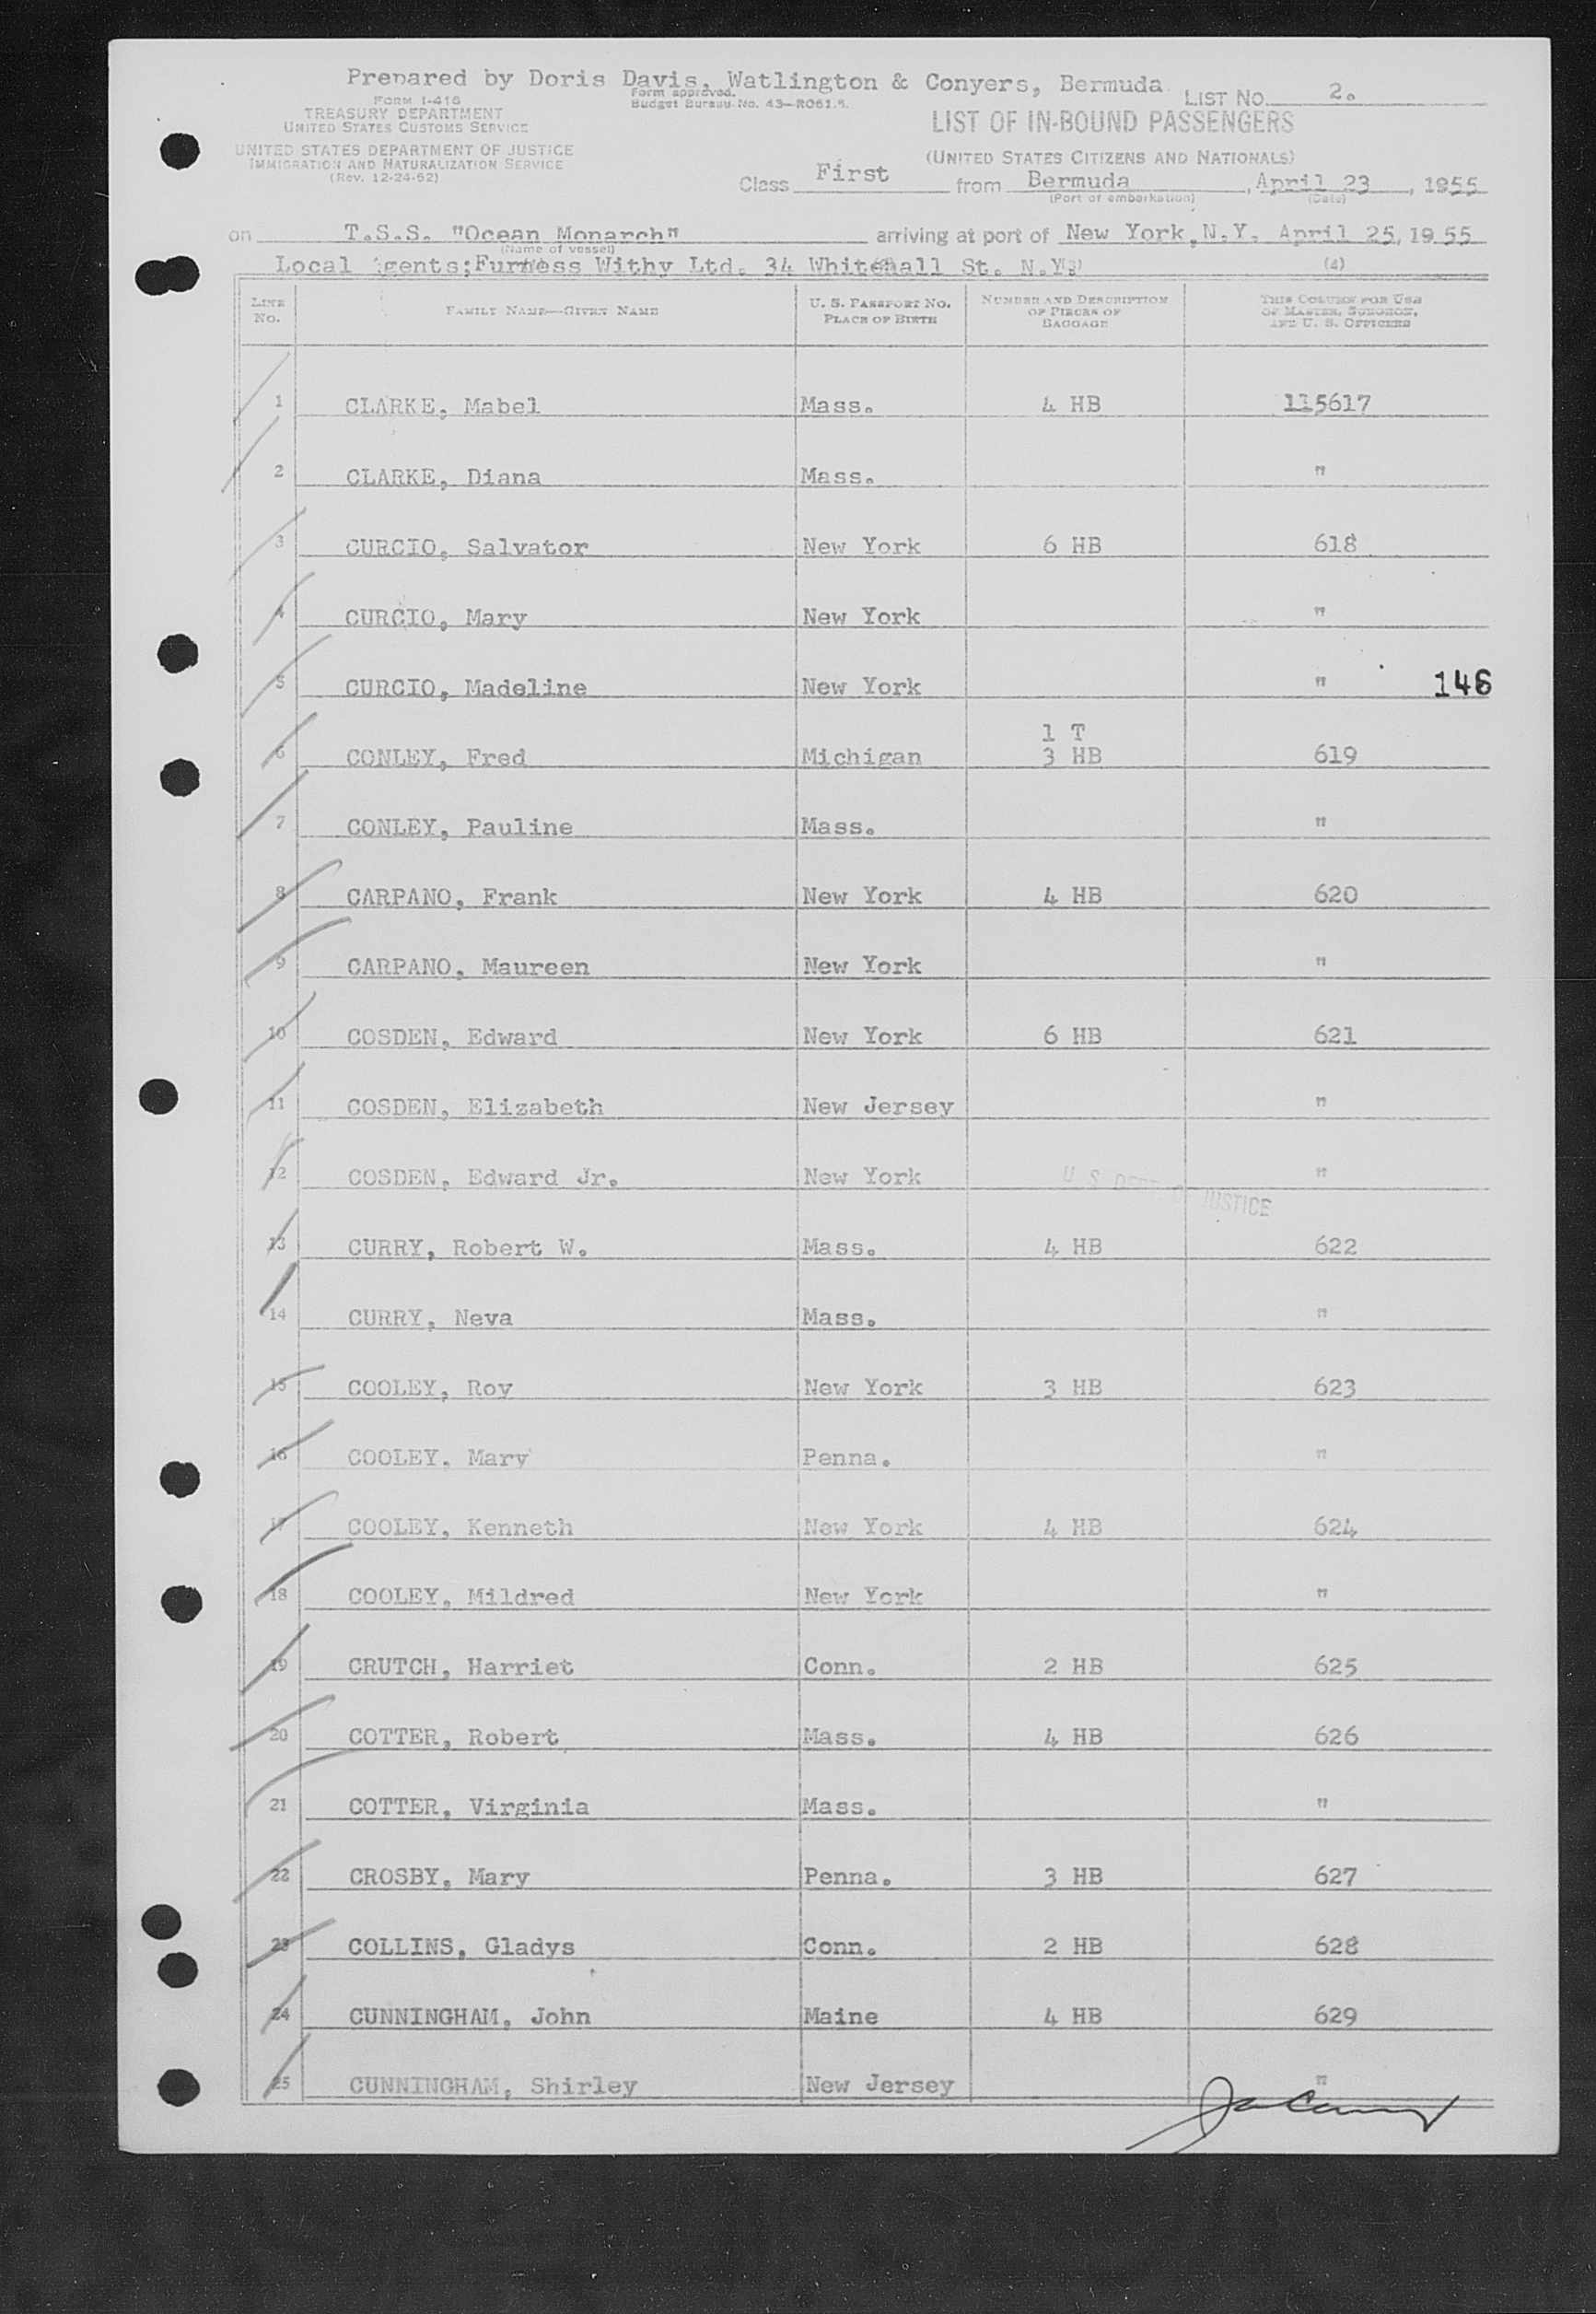 Prepared by Doris Davis, Watlington & Conyers, Bermuda
FORM I-418
TREASURY DEPARTMENT
UNITED STATES CUSTOMS SERVICE
UNITED STATES DEPARTMENT OF JUSTICE
IMMIGRATION AND NATURALIZATION SERVICE
(Rev. 12-24-52)
Form approved.
Budget Bureau No. 43-R061.5.
LIST NO. 2.
LIST OF IN-BOUND PASSENGERS
(UNITED STATES CITIZENS AND NATIONALS)
Class First from Bermuda, April 23, 1955
(Port of embarkation) (Date)
on T.S.S. "Ocean Monarch" arriving at port of New York, N.Y. April 25, 1955
(Name of vessel)
Local gents; Furness Withy Ltd. 34 Whitehall St. N.Y. (3) (4)
LINE NO. FAMILY NAME—GIVEN NAME U. S. PASSPORT NO. PLACE OF BIRTH NUMBER AND DESCRIPTION OF PIECES OF BAGGAGE THIS COLUMN FOR USE OF MASTER, SURGEON, AND U. S. OFFICERS
1 CLARKE, Mabel Mass. 4 HB 115617
2 CLARKE, Diana Mass. "
3 CURCIO, Salvator New York 6 HB 618
4 CURCIO, Mary New York "
5 CURCIO, Madeline New York " 146
6 CONLEY, Fred Michigan 1 T 3 HB 619
7 CONLEY, Pauline Mass. "
8 CARPANO, Frank New York 4 HB 620
9 CARPANO, Maureen New York "
10 COSDEN, Edward New York 6 HB 621
11 COSDEN, Elizabeth New Jersey "
12 COSDEN, Edward Jr. New York "
U S DEPT OF JUSTICE
13 CURRY, Robert W. Mass. 4 HB 622
14 CURRY, Neva Mass. "
15 COOLEY, Roy New York 3 HB 623
16 COOLEY, Mary Penna. "
17 COOLEY, Kenneth New York 4 HB 624
18 COOLEY, Mildred New York "
19 CRUTCH, Harriet Conn. 2 HB 625
20 COTTER, Robert Mass. 4 HB 626
21 COTTER, Virginia Mass. "
22 CROSBY, Mary Penna. 3 HB 627
23 COLLINS, Gladys Conn. 2 HB 628
24 CUNNINGHAM, John Maine 4 HB 629
25 CUNNINGHAM, Shirley New Jersey "